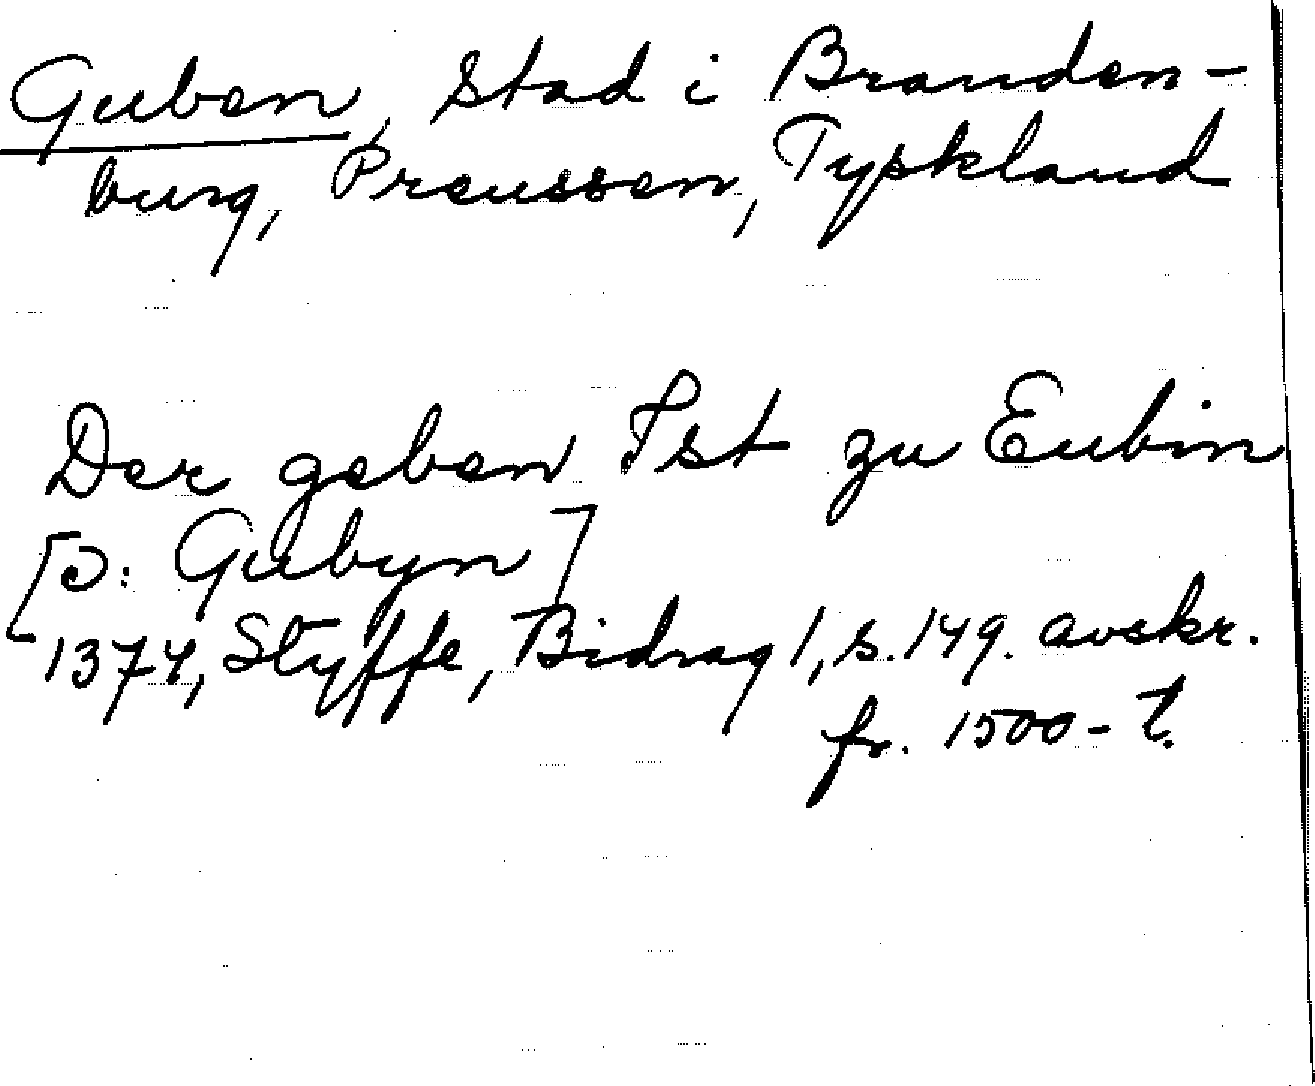 Guben, stad i Branden-
burg, Preussen, Tyskland
Der geben Ist zu Eubin
[ɔ: Gubyn]
1374, Styffe, Bidrag 1, s. 149. avskr.
fr. 1500-t.